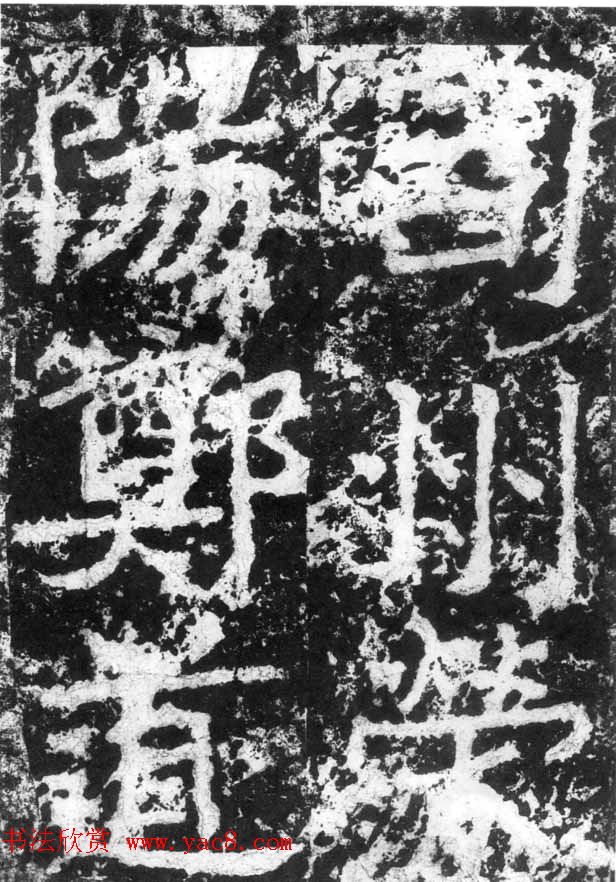 司州滎
陽鄭道
书法欣赏 www.yac8.com